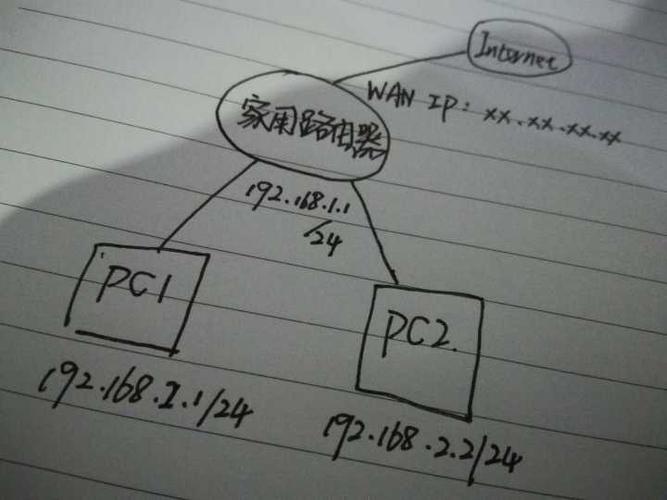 Internet
WAN IP: xx.xx.xx.xx
家用路由器
192.168.1.1
/24
PC1
PC2.
192.168.2.1/24
192.168.2.2/24